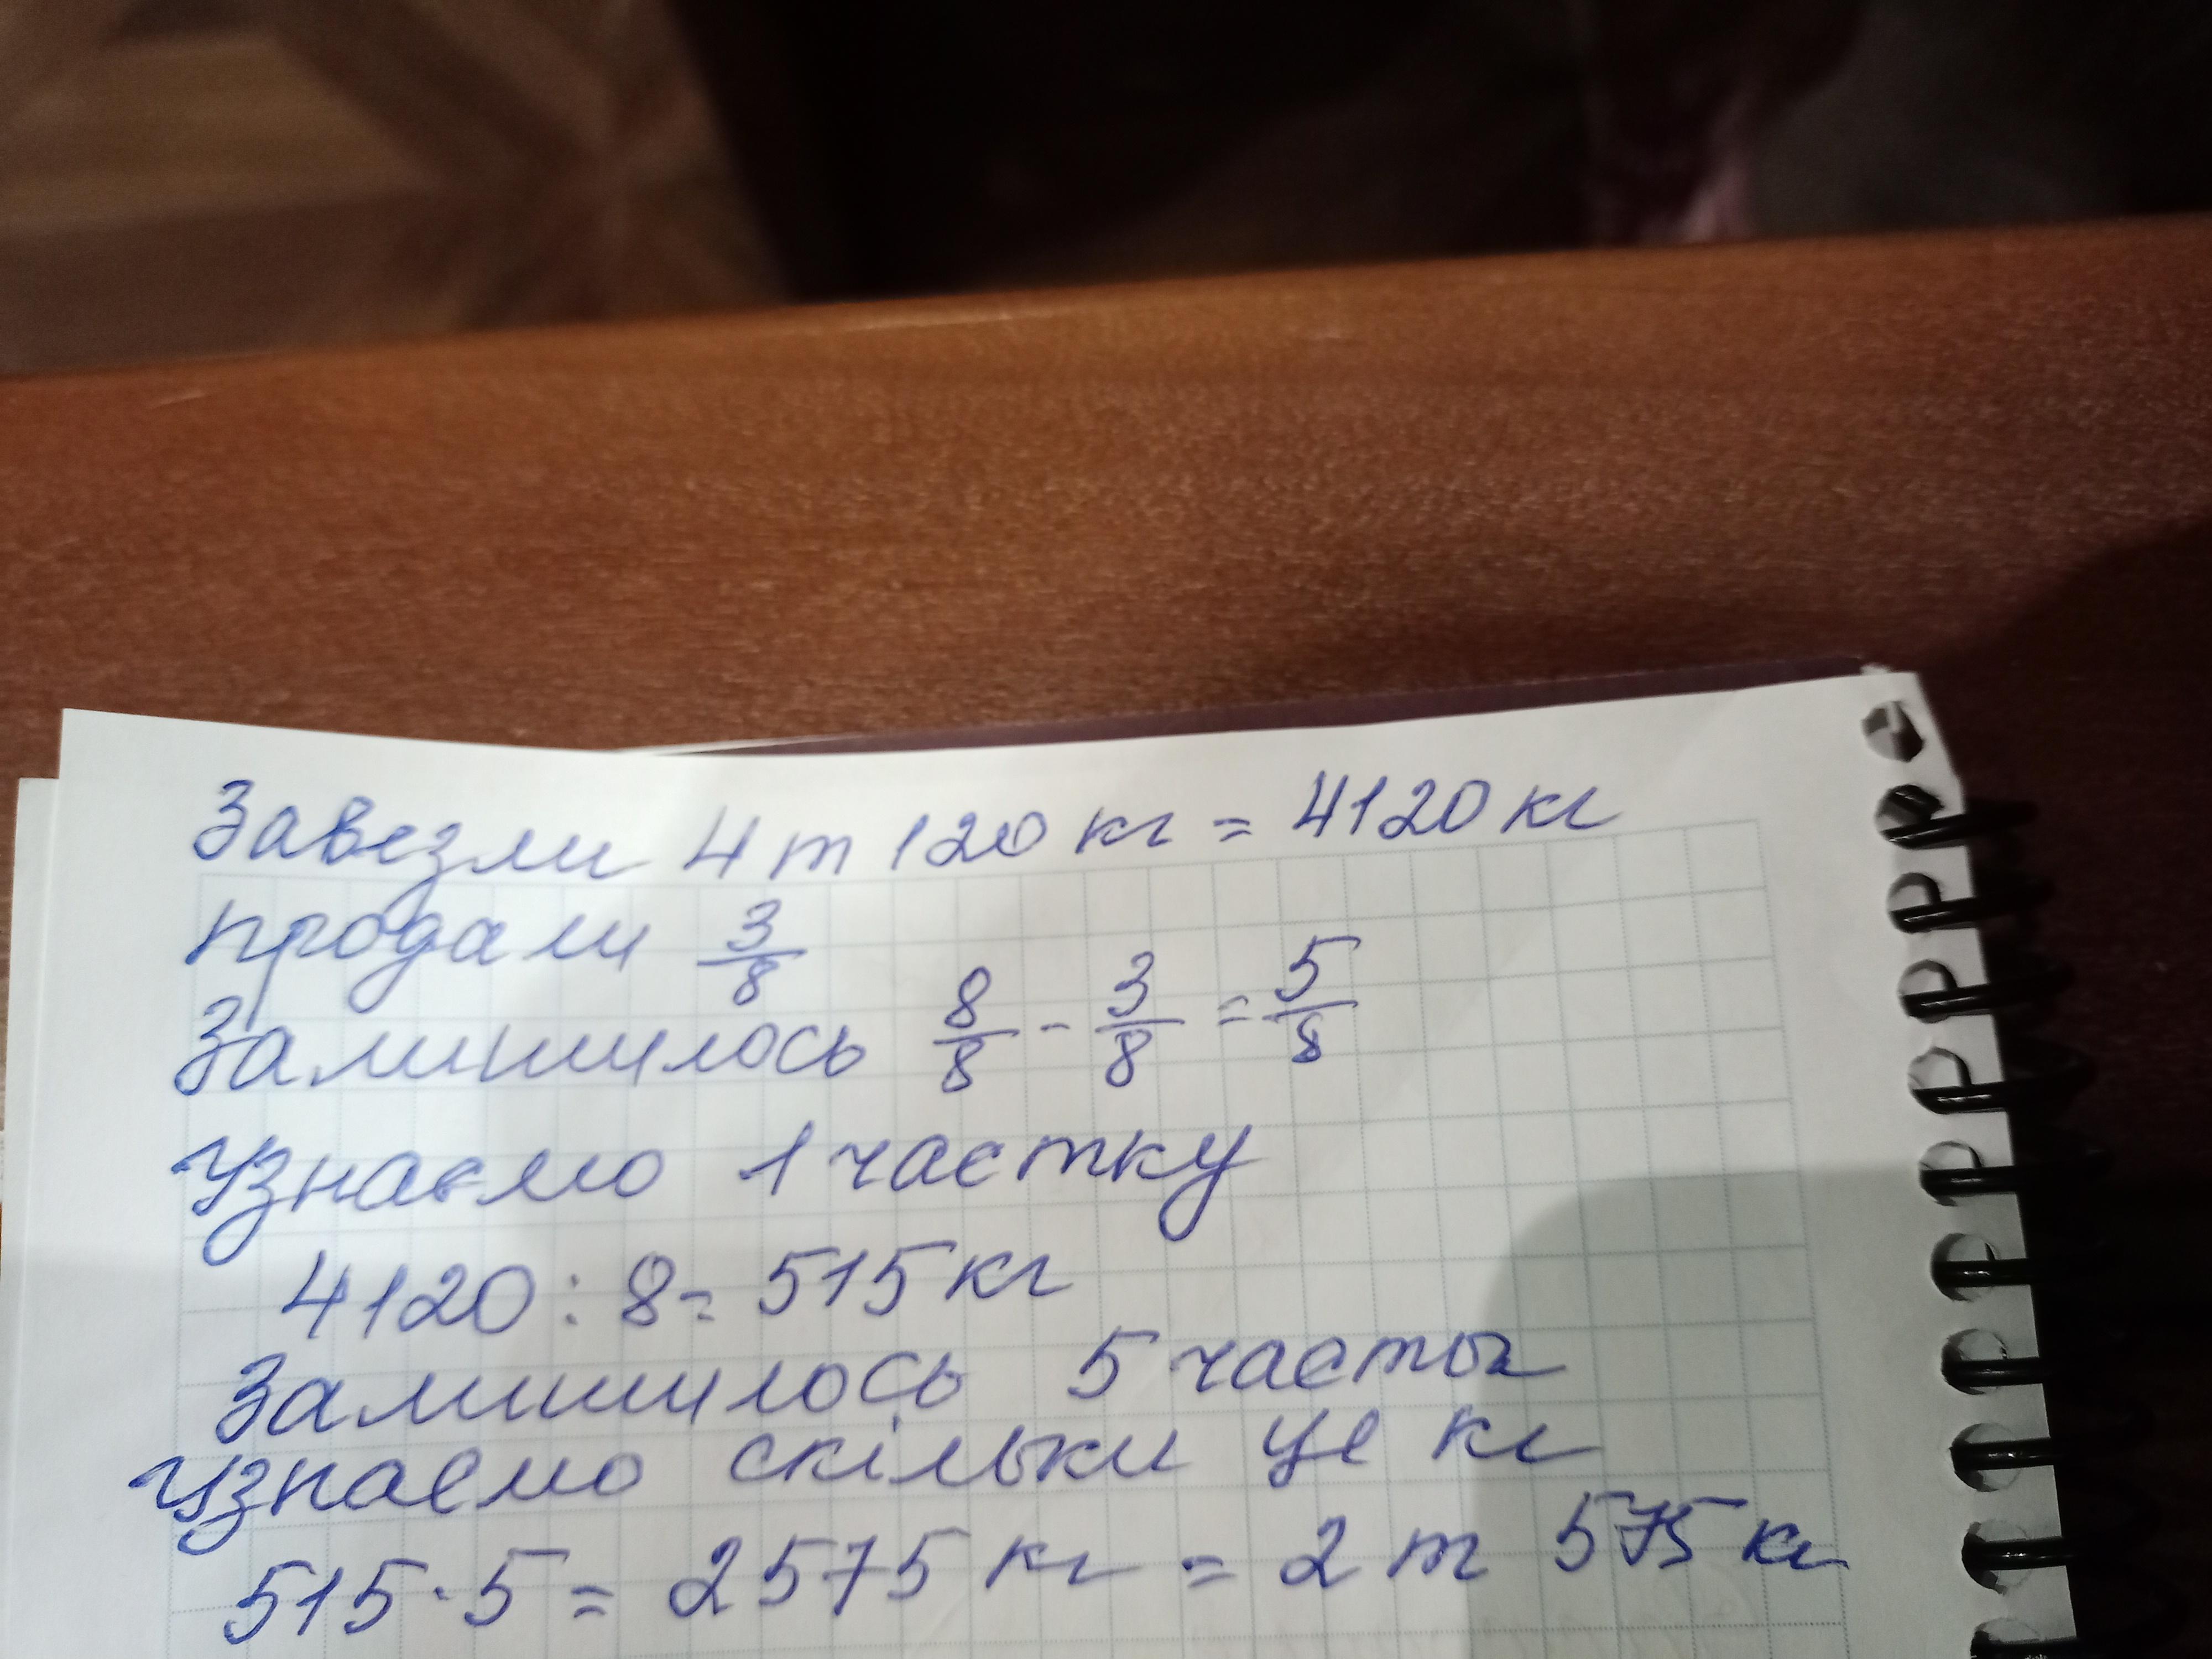 Завезли 4 т 120 кг = 4120 кг
продали 3/8
Залишилось 8/8 - 3/8 = 5/8
Узнаємо 1 частку
4120 : 8 = 515 кг
Залишилось 5 часток
Узнаємо скільки це кг
515 · 5 = 2575 кг = 2 т 575 кг